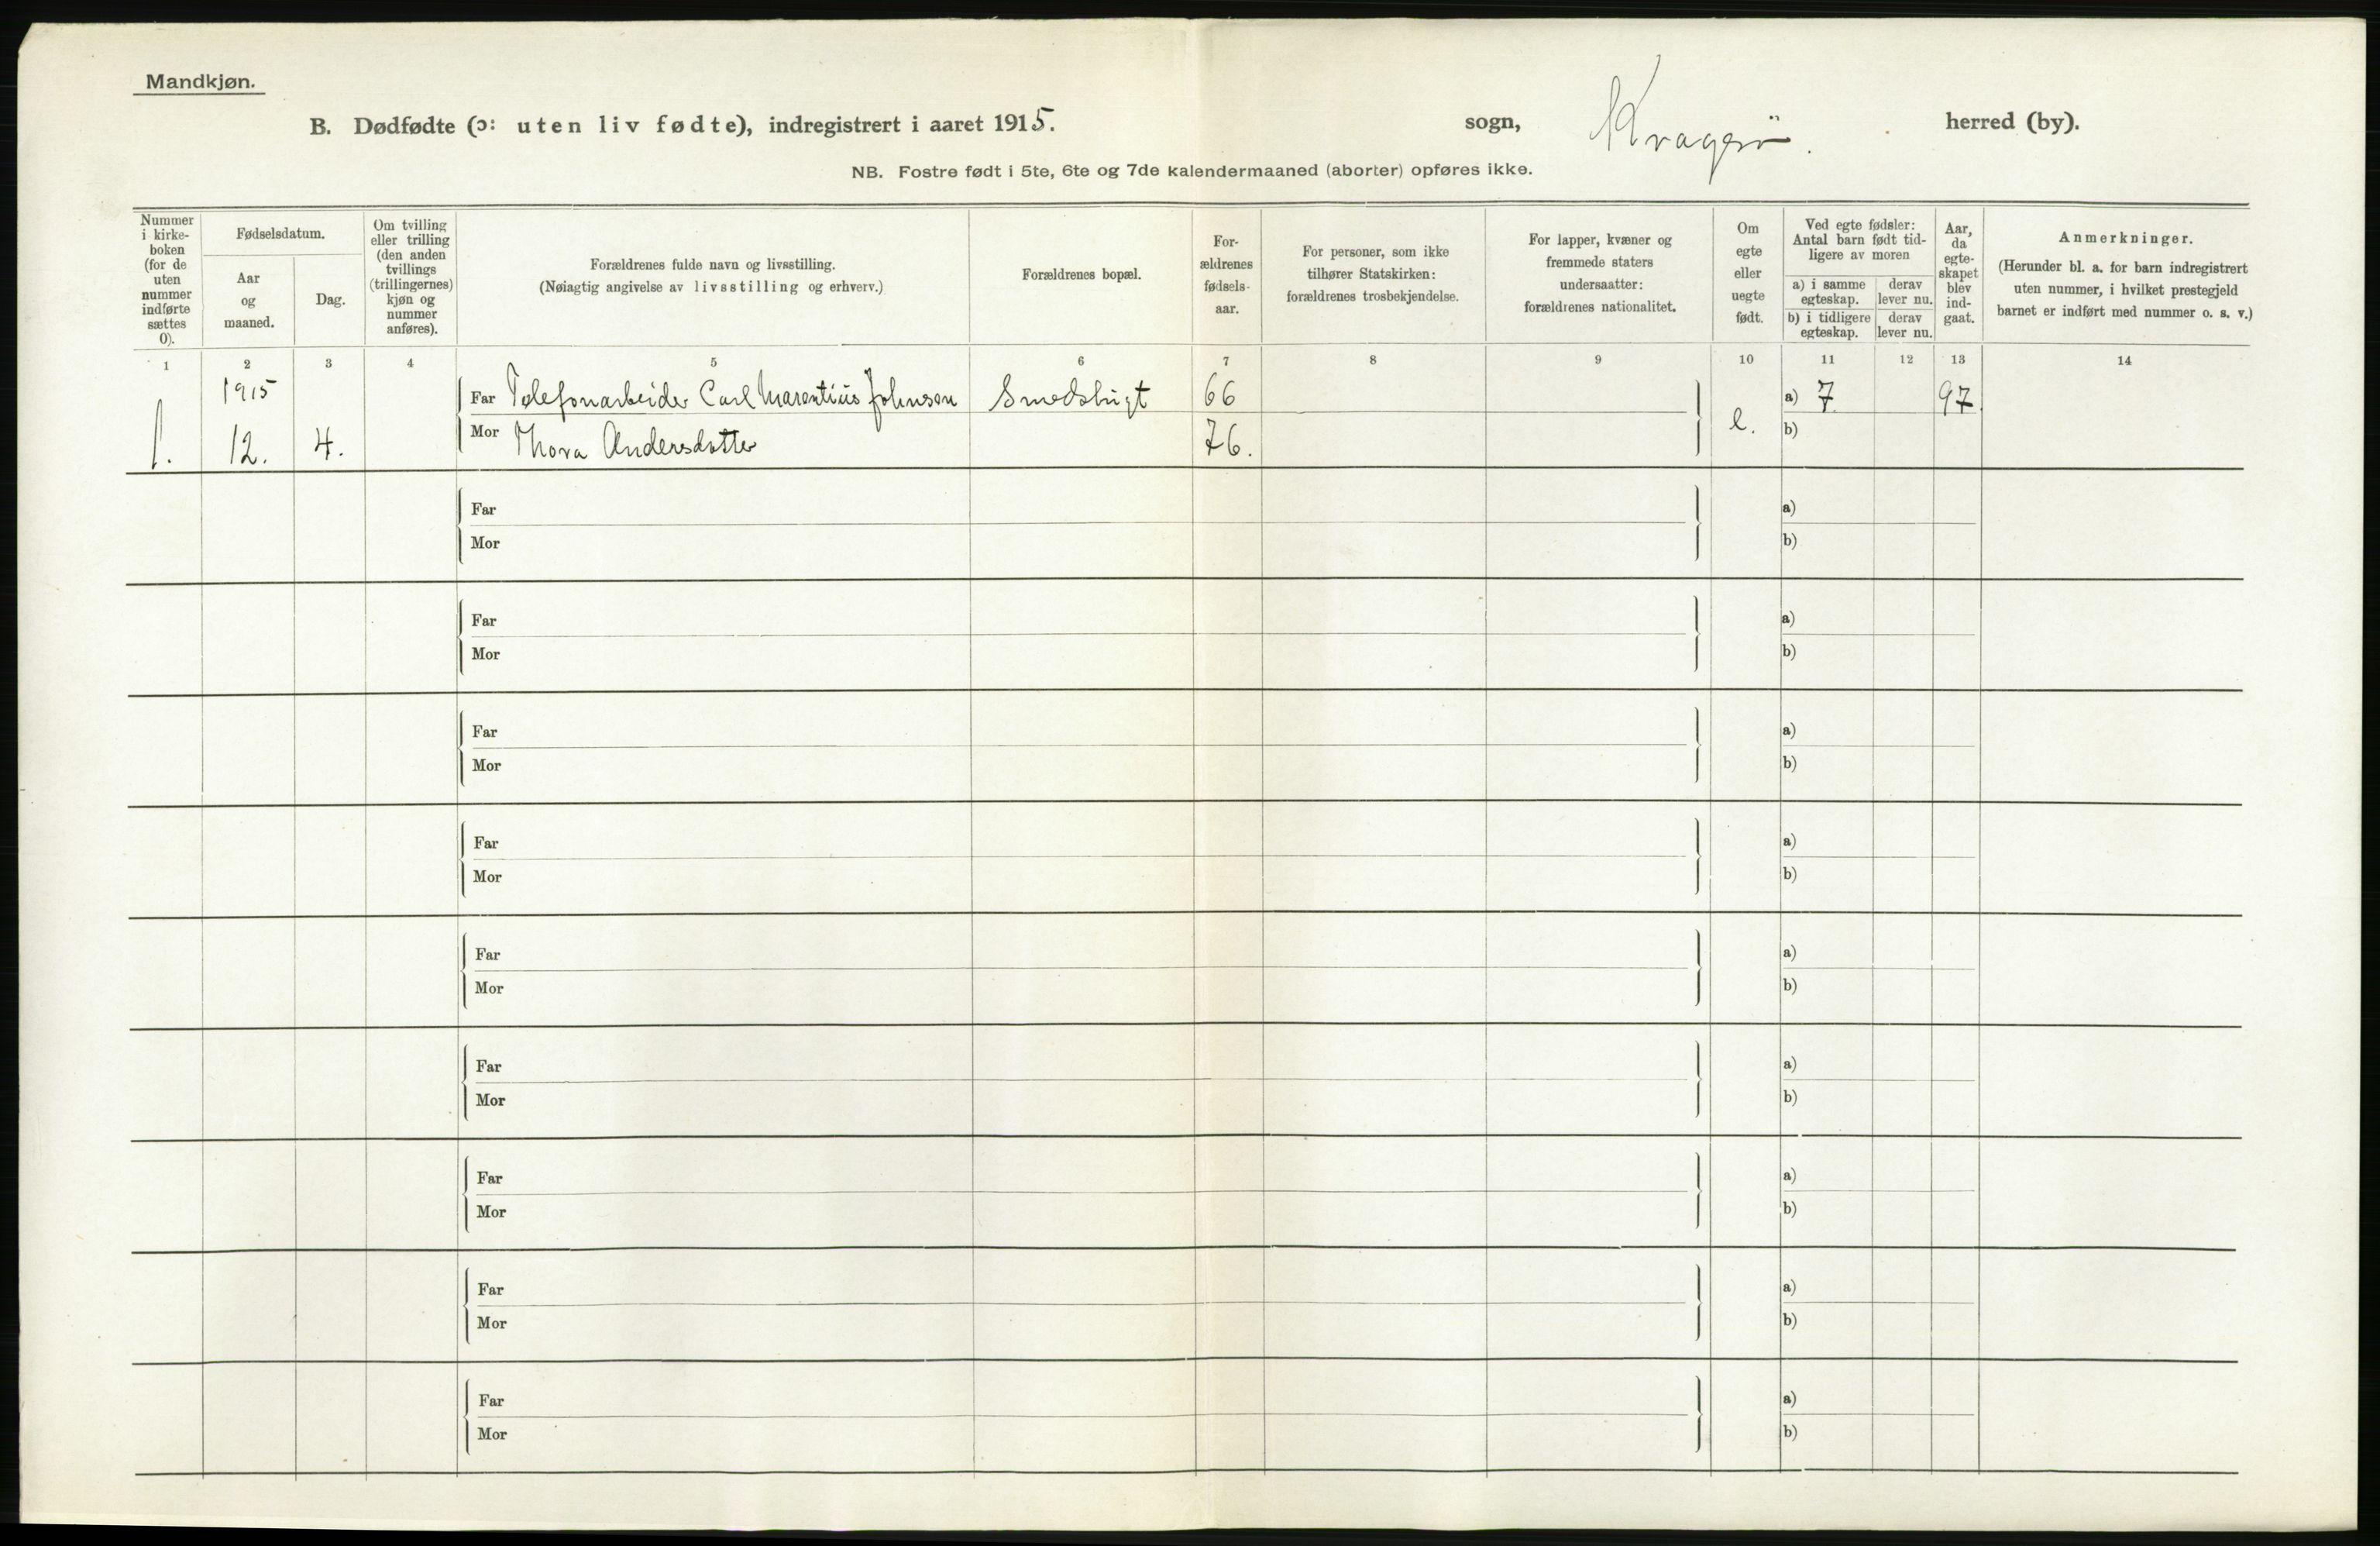 Mandkjøn.
B. Dødfødte (ɔ: uten liv fødte), indregistrert i aaret 1915. sogn, Kragerö. herred (by).
NB. Fostre født i 5te, 6te og 7de kalendermaaned (aborter) opføres ikke.
Nummer i kirke-boken (for de uten nummer indførte sættes 0).
Fødselsdatum.
Aar og maaned.
Dag.
Om tvilling eller trilling (den anden tvillings (trillingernes) kjøn og nummer anføres).
Forældrenes fulde navn og livsstilling.
(Nøiagtig angivelse av livsstilling og erhverv.)
Forældrenes bopæl.
For-ældrenes fødsels-aar.
For personer, som ikke tilhører Statskirken: forældrenes trosbekjendelse.
For lapper, kvæner og fremmede staters undersaatter: forældrenes nationalitet.
Om egte eller uegte født.
Ved egte fødsler: Antal barn født tid-ligere av moren
a) i samme egteskap.
derav lever nu.
b) i tidligere egteskap.
derav lever nu.
Aar, da egte-skapet blev ind-gaat.
Anmerkninger.
(Herunder bl. a. for barn indregistrert uten nummer, i hvilket prestegjeld barnet er indført med nummer o. s. v.)
1 2 3 4 5 6 7 8 9 10 11 12 13 14
1915 Far Telefonarbeider Carl Marentius Johnsen 66 a) 7 97
1. 12. 4. Mor Thora Andersdatter 76. e. b)
Far a)
Mor b)
Far a)
Mor b)
Far a)
Mor b)
Far a)
Mor b)
Far a)
Mor b)
Far a)
Mor b)
Far a)
Mor b)
Far a)
Mor b)
Far a)
Mor b)